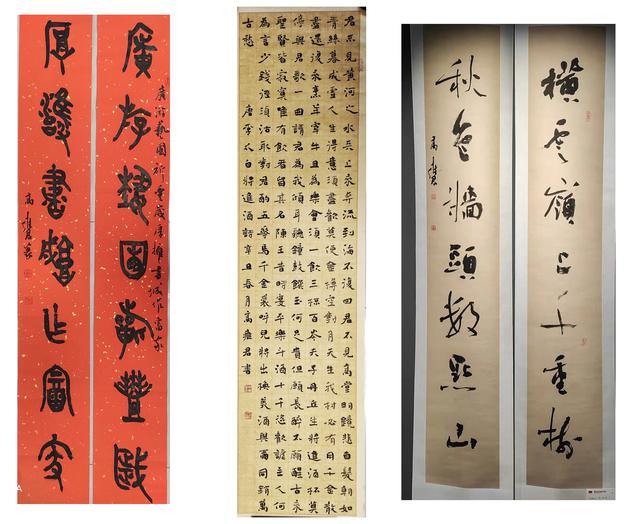 廣存藝圃祈豐歲
厚擁書城作富家
君不見黃河之水天上來奔流到海不復回君不見高堂明鏡悲白髮朝如
青絲暮成雪人生得意須盡歡莫使金樽空對月天生我材必有用千金散
盡還復來烹羊宰牛且為樂會須一飲三杯百岑夫子丹丘生將進酒杯莫
停與君歌一曲請君為我傾耳聽鐘鼓饌玉何足貴但願長醉不願醒古來
聖賢皆寂寞唯有飲者留其名陳王昔時宴平樂斗酒十千恣歡謔主人何
為言少錢徑須沽取對君酌五花馬千金裘呼兒將出換美酒與爾同銷萬
古愁 唐李太白將進酒詩辛丑春月高雍君書
橫雲嶺上千重樹
秋色牆頭數點山